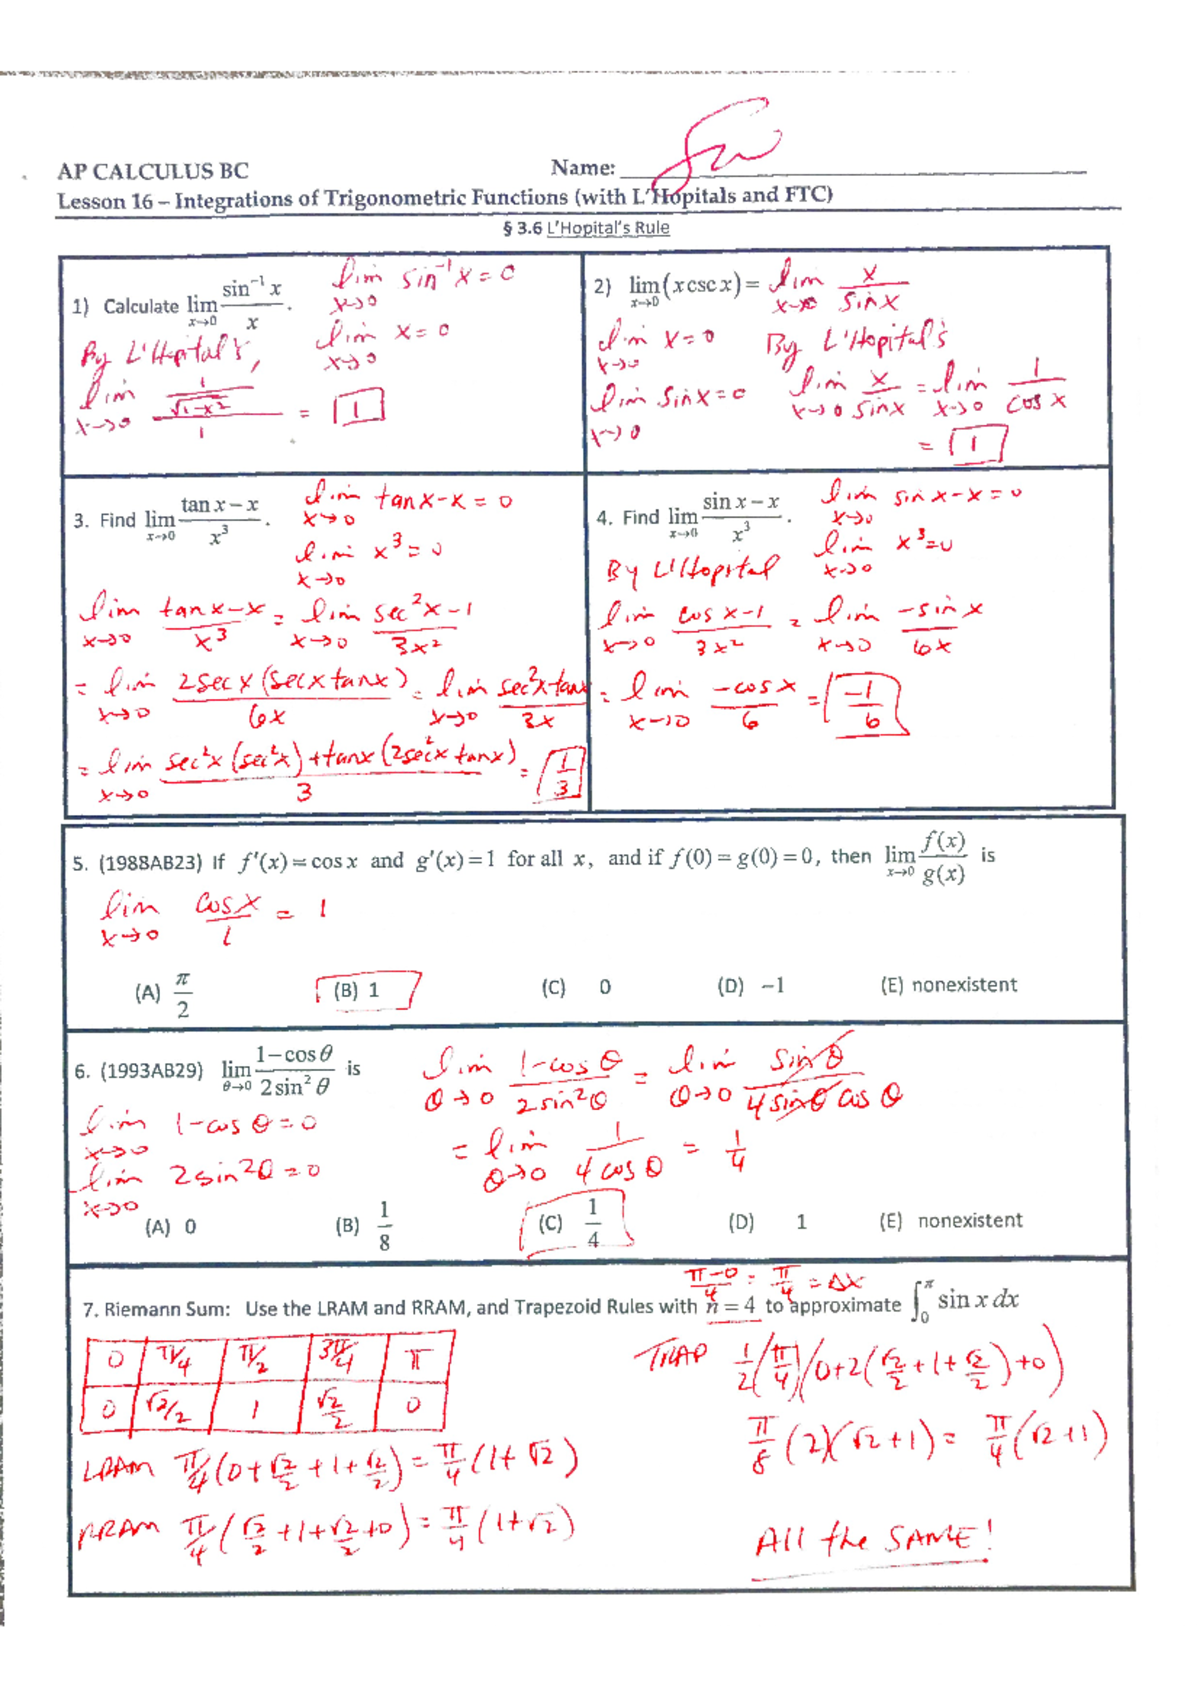 AP CALCULUS BC
Name:
Lesson 16 – Integrations of Trigonometric Functions (with L'Hopitals and FTC)
§ 3.6 L'Hopital's Rule
1) Calculate lim x→0 sin⁻¹x / x .
lim x→0 sin⁻¹x = 0
lim x→0 x = 0
By L'Hopital's,
lim x→0 (1/√(1-x²)) / 1 = 1
2) lim x→0 (x csc x) = lim x→0 x / sin x
lim x→0 x = 0 By L'Hopital's
lim x→0 sin x = 0 lim x→0 x / sin x = lim x→0 1 / cos x
= 1
3. Find lim x→0 (tan x – x) / x³ .
lim x→0 tan x - x = 0
lim x→0 x³ = 0
lim x→0 (tan x - x) / x³ = lim x→0 (sec²x - 1) / 3x²
= lim x→0 2 sec x (sec x tan x) / 6x = lim x→0 sec²x tan x / 3x
= lim x→0 (sec²x (sec²x) + tan x (2sec²x tan x)) / 3 = 1/3
4. Find lim x→0 (sin x – x) / x³ .
lim x→0 sin x - x = 0
lim x→0 x³ = 0
By L'Hopital
lim x→0 (cos x - 1) / 3x² = lim x→0 -sin x / 6x
= lim x→0 -cos x / 6 = -1/6
5. (1988AB23) If f'(x) = cos x and g'(x) = 1 for all x, and if f(0) = g(0) = 0, then lim x→0 f(x) / g(x) is
lim x→0 cos x / 1 = 1
(A) π/2 (B) 1 (C) 0 (D) –1 (E) nonexistent
6. (1993AB29) lim θ→0 (1 – cos θ) / 2 sin² θ is
lim θ→0 (1 - cos θ) / 2 sin² θ = lim θ→0 sin θ / 4 sin θ cos θ
lim x→0 1 - cos θ = 0
= lim θ→0 1 / 4 cos θ = 1/4
lim x→0 2 sin² θ = 0
(A) 0 (B) 1/8 (C) 1/4 (D) 1 (E) nonexistent
(π-0)/4 = π/4 = Δx
7. Riemann Sum: Use the LRAM and RRAM, and Trapezoid Rules with n = 4 to approximate ∫₀^π sin x dx
0 π/4 π/2 3π/4 π
0 √2/2 1 √2/2 0
TRAP 1/2 (π/4) (0+2(√2/2 + 1 + √2/2) + 0)
π/8 (2)(√2 + 1) = π/4 (√2 + 1)
LRAM π/4 (0 + √2/2 + 1 + √2/2) = π/4 (1 + √2)
RRAM π/4 (√2/2 + 1 + √2/2 + 0) = π/4 (1 + √2)
All the SAME!